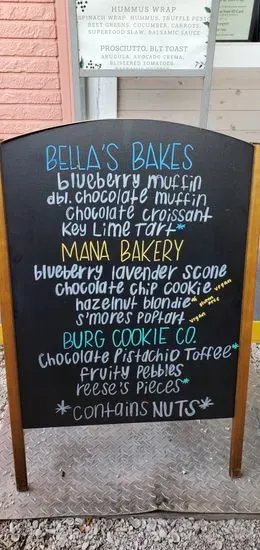 HUMMUS WRAP
SPINACH WRAP, HUMMUS, TRUFFLE PESTO
BEET GREENS, CUCUMBER, CARROTS
SUPERFOOD SLAW, BALSAMIC SAUCE
PROSCIUTTO, BLT TOAST
ARUGULA, AVOCADO CREMA,
BLISTERED TOMATOES
BELLA'S BAKES
blueberry muffin
dbl. chocolate muffin
chocolate croissant
Key Lime Tart*
MANA BAKERY
blueberry lavender scone
chocolate chip cookie vegan
hazelnut blondie
s'mores poptart vegan
BURG COOKIE CO.
Chocolate Pistachio Toffee*
fruity Pebbles
reese's pieces*
*contains NUTS*